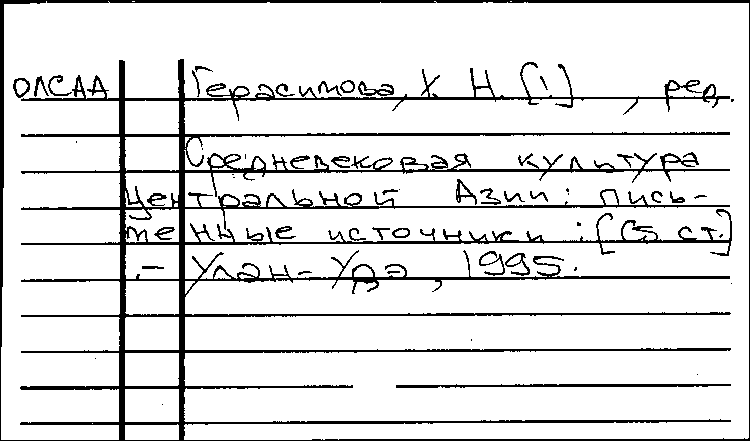 ОЛСАА Герасимова, Х. Н. [!]. , ред.
Средневековая культура
Центральной Азии: пись-
менные источники: [Сб ст.]
.- Улан-Удэ, 1995.